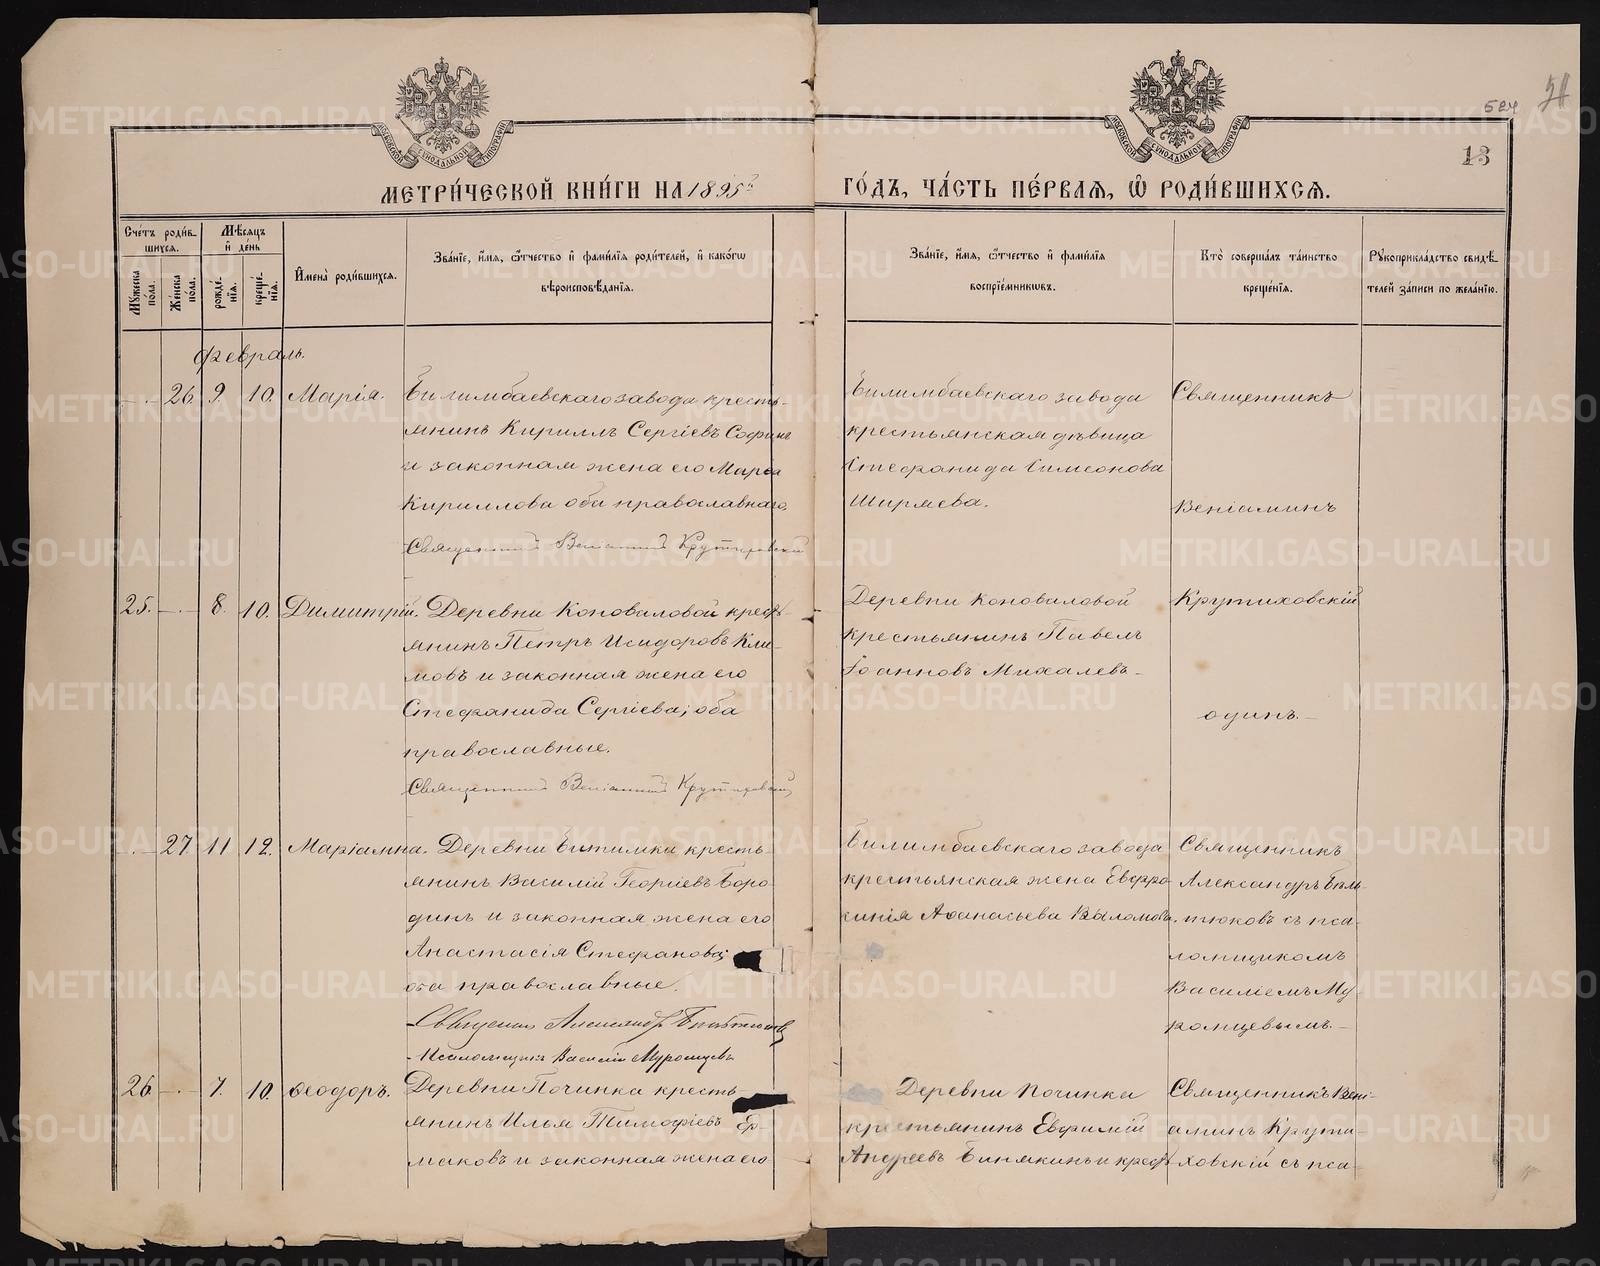 524
13
МОСКОВСКОЙ СѴНОДАЛЬНОЙ ТИПОГРАФІИ
МОСКОВСКОЙ СѴНОДАЛЬНОЙ ТИПОГРАФІИ
МЕТРИ́ЧЕСКОЙ КНИ́ГИ НА 1895 ГО́ДЪ, ЧА́СТЬ ПЕ́РВАѦ, Ѡ҆ РОДИ́ВШИХСѦ.
Сче́тъ роди́в-
шихсѧ.
Мꙋ́жеска
по́ла.
Же́нска
по́ла.
Мѣ́сѧцъ
и҆ де́нь
рожде́-
нїѧ.
креще́-
нїѧ.
И҆мена̀ роди́вшихсѧ.
Зва́нїе, и҆́мѧ, ѻ҆́тчество и҆ фами́лїѧ роди́телей, и҆ како́гѡ
вѣроисповѣ́данїѧ.
Зва́нїе, и҆́мѧ, ѻ҆́тчество и҆ фами́лїѧ
воспрїе́мникѡвъ.
Кто̀ соверша́лъ та́инство
креще́нїѧ.
Рꙋкоприкла́дство свидѣ́-
телей за́писи по жела́нїю.
Февраль.
26. 9. 10. Марія.
Билимбаевскаго завода кресть-
янинъ Кириллъ Сергіевъ Софинъ
и законная жена его Марѳа
Кириллова оба православнаго.
Священникъ Веніаминъ Крутиховскій
Билимбаевскаго завода
крестьянская дѣвица
Стефанида Симеонова
Ширяева.
Священникъ
Веніаминъ
Крутиховскій
одинъ.
25. 8. 10. Димитрій.
Деревни Коноваловой крест-
янинъ Петръ Исидоровъ Кли-
мовъ и законная жена его
Стефанида Сергіева; оба
православные.
Священникъ Веніаминъ Крутиховскій
Деревни Коноваловой
крестьянинъ Павелъ
Іоанновъ Михалевъ.
27. 11 12. Маріамна.
Деревни Битимка кресть-
янинъ Василій Георгіевъ Боро-
динъ и законная жена его
Анастасія Стефанова;
оба православные.
Священник Александръ
Псаломщикъ Василій Муромцевъ
Билимбаевскаго завода
крестьянская жена Евфро-
синія Аѳанасьева
Священникъ
Александръ
съ пса-
ломщикомъ
Василіемъ Му-
ромцевымъ.
26. 7. 10. Ѳеодоръ.
Деревни Починка кресть-
янинъ Илья Тимофіевъ Ер-
маковъ и законная жена его
Деревни Починка
крестьянинъ Евфимій
Андреевъ Бинякинъ и крест-
Священникъ Вені-
аминъ Крути-
ховскій съ пса-
METRIKI.GASO-URAL.RU